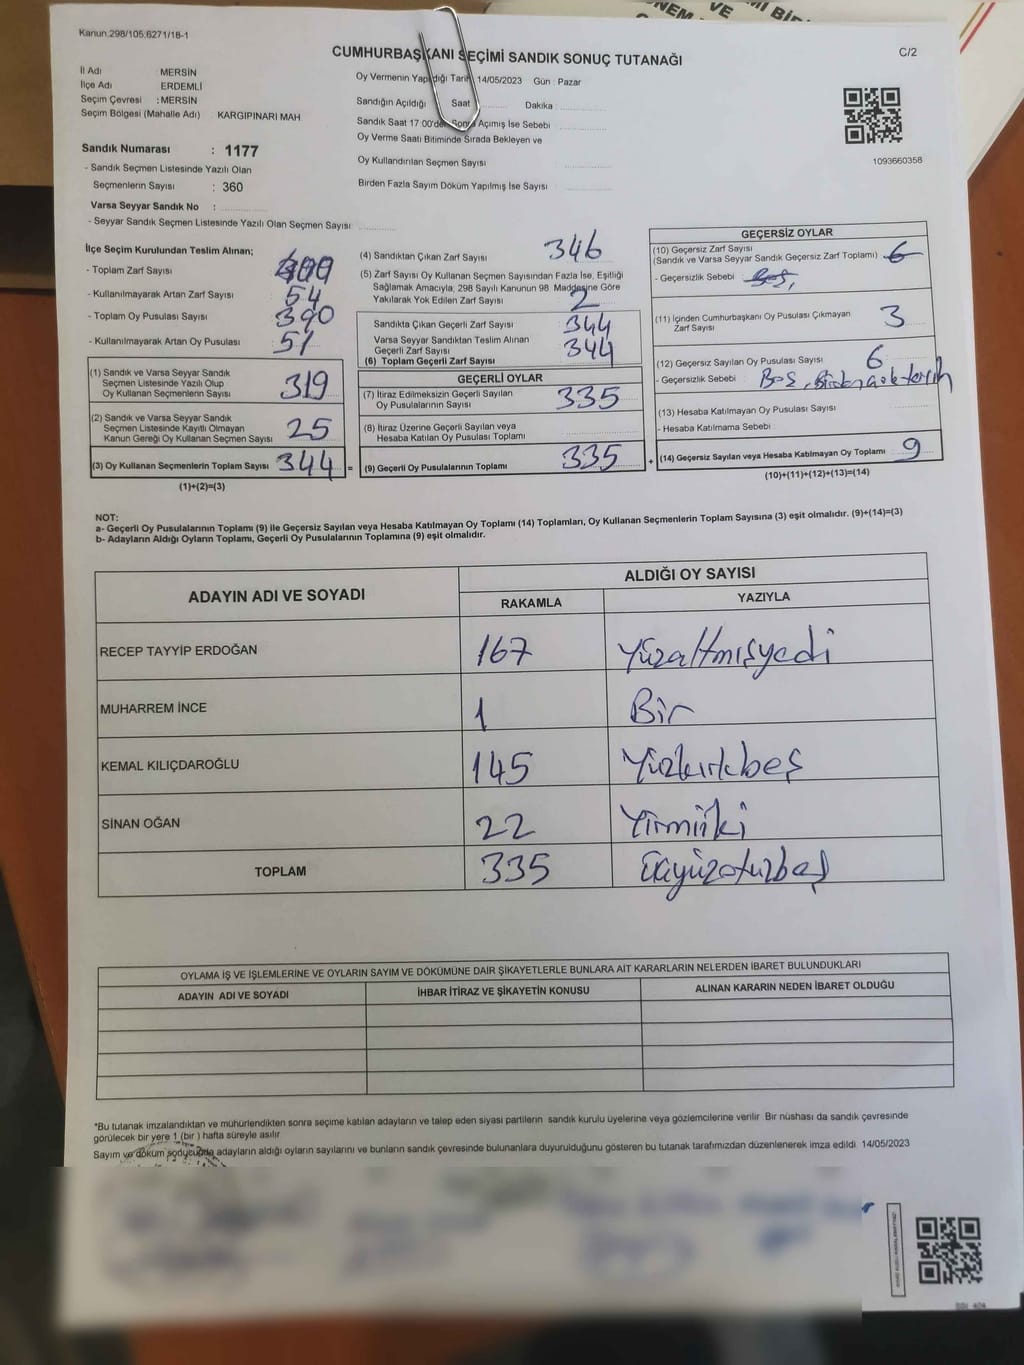 NEM VE
Mİ BİR
Kanun.298/105;6271/18-1
CUMHURBAŞKANI SEÇİMİ SANDIK SONUÇ TUTANAĞI
C/2
İl Adı MERSİN
İlçe Adı ERDEMLİ
Seçim Çevresi : MERSİN
Seçim Bölgesi (Mahalle Adı) KARGIPINARI MAH
Sandık Numarası : 1177
- Sandık Seçmen Listesinde Yazılı Olan
Seçmenlerin Sayısı : 360
Varsa Seyyar Sandık No :
- Seyyar Sandık Seçmen Listesinde Yazılı Olan Seçmen Sayısı
Oy Vermenin Yapıldığı Tarih 14/05/2023 Gün : Pazar
Sandığın Açıldığı Saat Dakika
Sandık Saat 17.00'den Sonra Açımış İse Sebebi
Oy Verme Saati Bitiminde Sırada Bekleyen ve
Oy Kullandırılan Seçmen Sayısı
Birden Fazla Sayım Döküm Yapılmış İse Sayısı
1093660358
İlçe Seçim Kurulundan Teslim Alınan;
- Toplam Zarf Sayısı 400
- Kullanılmayarak Artan Zarf Sayısı 54
- Toplam Oy Pusulası Sayısı 390
- Kullanılmayarak Artan Oy Pusulası 51
(1) Sandık ve Varsa Seyyar Sandık
Seçmen Listesinde Yazılı Olup
Oy Kullanan Seçmenlerin Sayısı 319
(2) Sandık ve Varsa Seyyar Sandık
Seçmen Listesinde Kayıtlı Olmayan
Kanun Gereği Oy Kullanan Seçmen Sayısı 25
(3) Oy Kullanan Seçmenlerin Toplam Sayısı 344 =
(1)+(2)=(3)
(4) Sandıktan Çıkan Zarf Sayısı 346
(5) Zarf Sayısı Oy Kullanan Seçmen Sayısından Fazla İse, Eşitliği
Sağlamak Amacıyla, 298 Sayılı Kanunun 98. Maddesine Göre
Yakılarak Yok Edilen Zarf Sayısı 2
Sandıkta Çıkan Geçerli Zarf Sayısı 344
Varsa Seyyar Sandıktan Teslim Alınan
Geçerli Zarf Sayısı
(6) Toplam Geçerli Zarf Sayısı 344
GEÇERLİ OYLAR
(7) İtiraz Edilmeksizin Geçerli Sayılan
Oy Pusulalarının Sayısı 335
(8) İtiraz Üzerine Geçerli Sayılan veya
Hesaba Katılan Oy Pusulası Toplamı
(9) Geçerli Oy Pusulalarının Toplamı 335 +
GEÇERSİZ OYLAR
(10) Geçersiz Zarf Sayısı
(Sandık ve Varsa Seyyar Sandık Geçersiz Zarf Toplamı) 6
- Geçersizlik Sebebi Boş,
(11) İçinden Cumhurbaşkanı Oy Pusulası Çıkmayan
Zarf Sayısı 3
(12) Geçersiz Sayılan Oy Pusulası Sayısı 6
- Geçersizlik Sebebi Boş, Birden çok tercih
(13) Hesaba Katılmayan Oy Pusulası Sayısı
- Hesaba Katılmama Sebebi
(14) Geçersiz Sayılan veya Hesaba Katılmayan Oy Toplamı 9
(10)+(11)+(12)+(13)=(14)
NOT:
a- Geçerli Oy Pusulalarının Toplamı (9) ile Geçersiz Sayılan veya Hesaba Katılmayan Oy Toplamı (14) Toplamları, Oy Kullanan Seçmenlerin Toplam Sayısına (3) eşit olmalıdır. (9)+(14)=(3)
b- Adayların Aldığı Oyların Toplamı, Geçerli Oy Pusulalarının Toplamına (9) eşit olmalıdır.
ADAYIN ADI VE SOYADI
ALDIĞI OY SAYISI
RAKAMLA YAZIYLA
RECEP TAYYİP ERDOĞAN 167 Yüzaltmışyedi
MUHARREM İNCE 1 Bir
KEMAL KILIÇDAROĞLU 145 Yüzkırkbeş
SİNAN OĞAN 22 Yirmiiki
TOPLAM 335 Üçyüzotuzbeş
OYLAMA İŞ VE İŞLEMLERİNE VE OYLARIN SAYIM VE DÖKÜMÜNE DAİR ŞİKAYETLERLE BUNLARA AİT KARARLARIN NELERDEN İBARET BULUNDUKLARI
ADAYIN ADI VE SOYADI İHBAR İTİRAZ VE ŞİKAYETİN KONUSU ALINAN KARARIN NEDEN İBARET OLDUĞU
*Bu tutanak imzalandıktan ve mühürlendikten sonra seçime katılan adayların ve talep eden siyasi partilerin sandık kurulu üyelerine veya gözlemcilerine verilir Bir nüshası da sandık çevresinde
görülecek bir yere 1 (bir ) hafta süreyle asılır
Sayım ve döküm sonucunda adayların aldığı oyların sayılarını ve bunların sandık çevresinde bulunanlara duyurulduğunu gösteren bu tutanak tarafımızdan düzenlenerek imza edildi. 14/05/2023